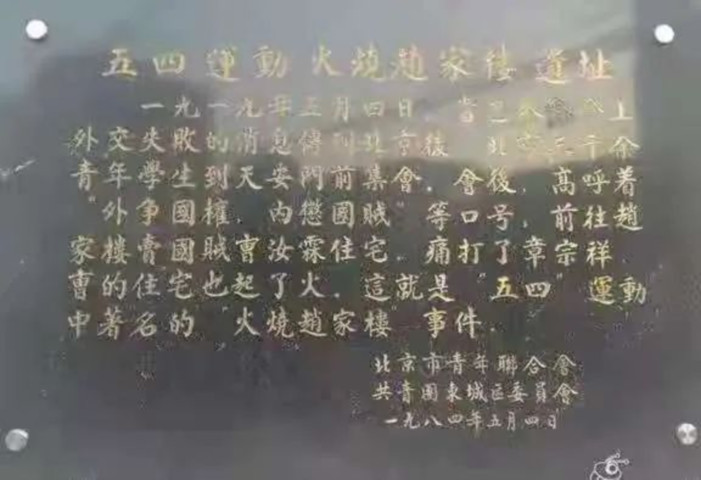 五四運動火燒趙家楼遺址
一九一九年五月四日，當巴黎會上
外交失敗的消息傳到北京後，北京三千余
青年學生到天安門前集會，會後，高呼着
“外争國權，内懲國賊”等口号，前往趙
家樓賣國賊曹汝霖住宅，痛打了章宗祥，
曹的住宅也起了火，這就是“五四”運動
中著名的“火燒趙家樓”事件。
北京市青年聯合會
共青團東城區委員會
一九八四年五月四日